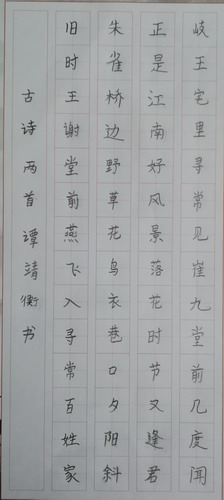 岐王宅里寻常见崔九堂前几度闻
正是江南好风景落花时节又逢君
朱雀桥边野草花鸟衣巷口夕阳斜
旧时王谢堂前燕飞入寻常百姓家
古诗两首谭靖衡书